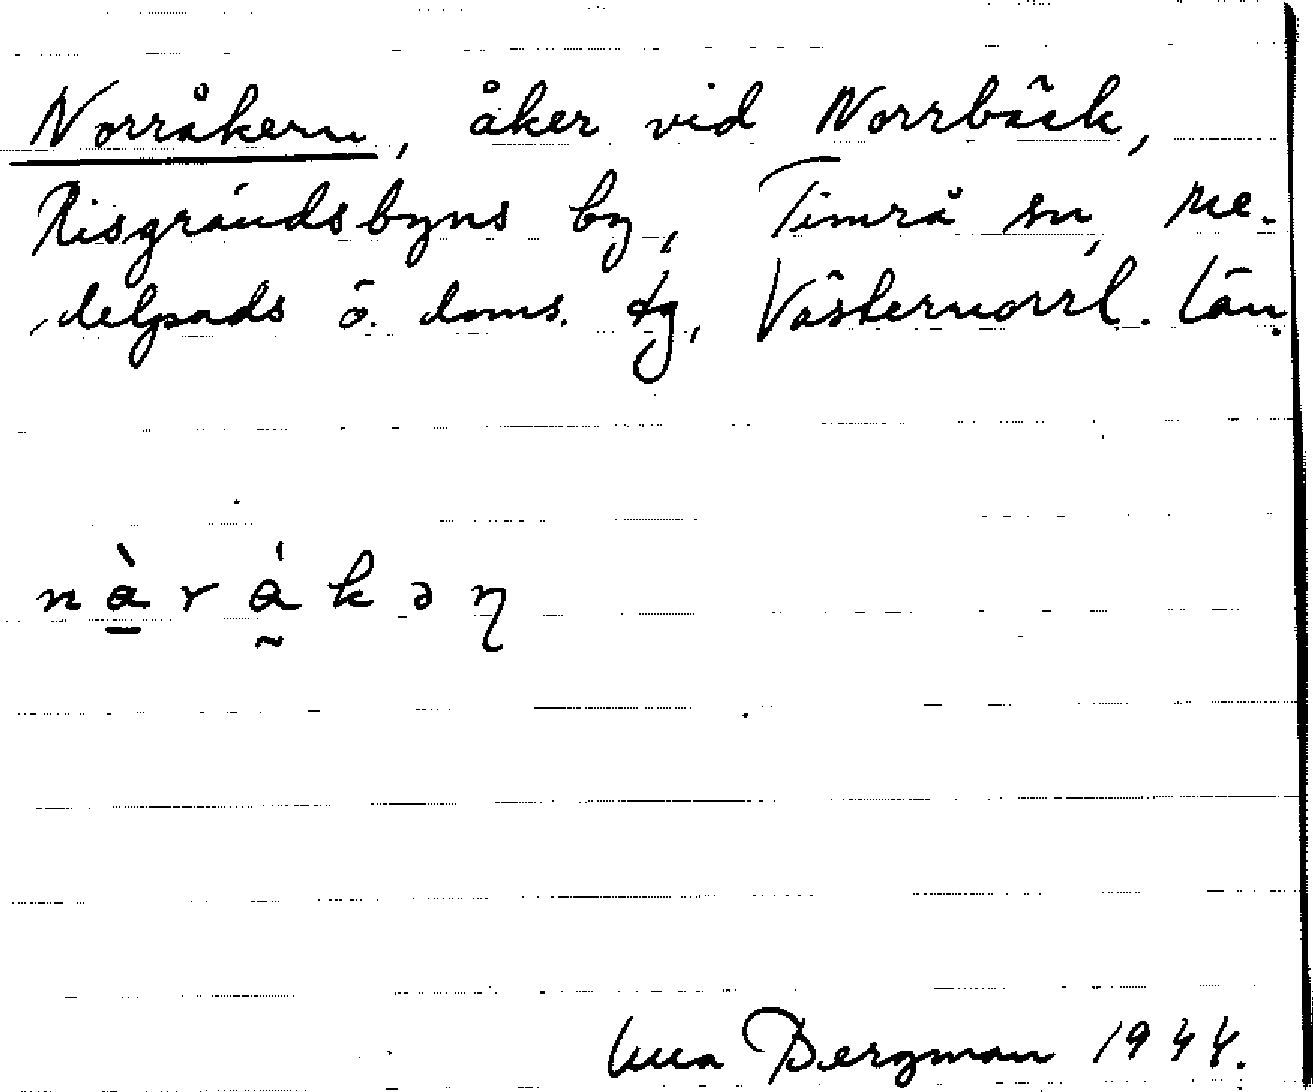 Norråkern, åker vid Norrbäck,
Risgrändsbyns by, Timrå sn, Me-
delpads ö. doms. tg, Västernorrl. län.
nàrákəɳ
Bergman 1944.